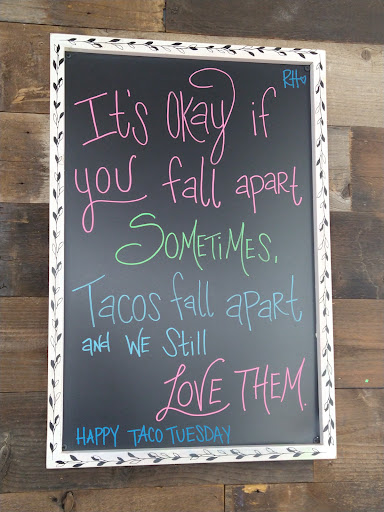 RH
It's okay if
you fall apart
SOMETIMES.
Tacos fall apart
and WE Still
LOVE THEM.
HAPPY TACO TUESDAY